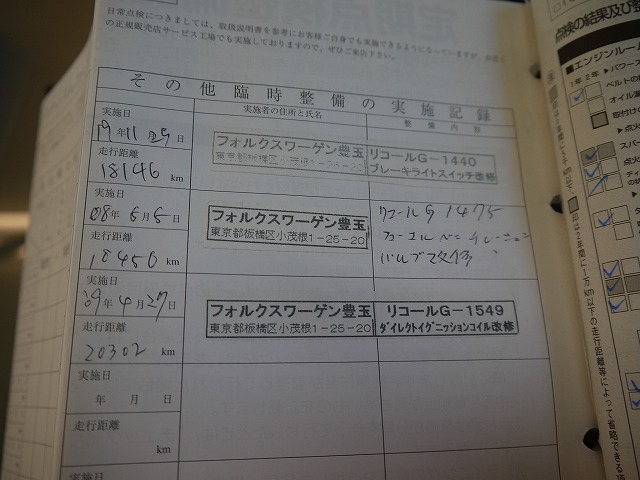 日常点検につきましては、取扱説明書を参考にお客様ご自身でも実施できるようになっていますが、お近
の正規販売店サービス工場でも実施しておりますので、ぜひご来店下さい。
その他臨時整備の実施記録
実施日
実施者の住所と氏名
整備内容
19年11月29日
走行距離
18146 km
フォルクスワーゲン豊玉
東京都板橋区小茂根1-25-20
リコールG-1440
ブレーキライトスイッチ改修
実施日
08年5月5日
走行距離
18456 km
フォルクスワーゲン豊玉
東京都板橋区小茂根1-25-20
リコールG1475
バルブ改修
実施日
09年4月27日
走行距離
20302 km
フォルクスワーゲン豊玉
東京都板橋区小茂根1-25-20
リコールG-1549
ダイレクトイグニッションコイル改修
実施日
年 月 日
走行距離
km
実施日
点検の結果及び整
■エンジンルー
1年 2年
▶パワース
ベルトの
オイル漏
取付け
▶点火
スパー
点火
ディ
の状
▶バ
▶エ
印は2年間に1万km以下の走行距離等によって省略できる項